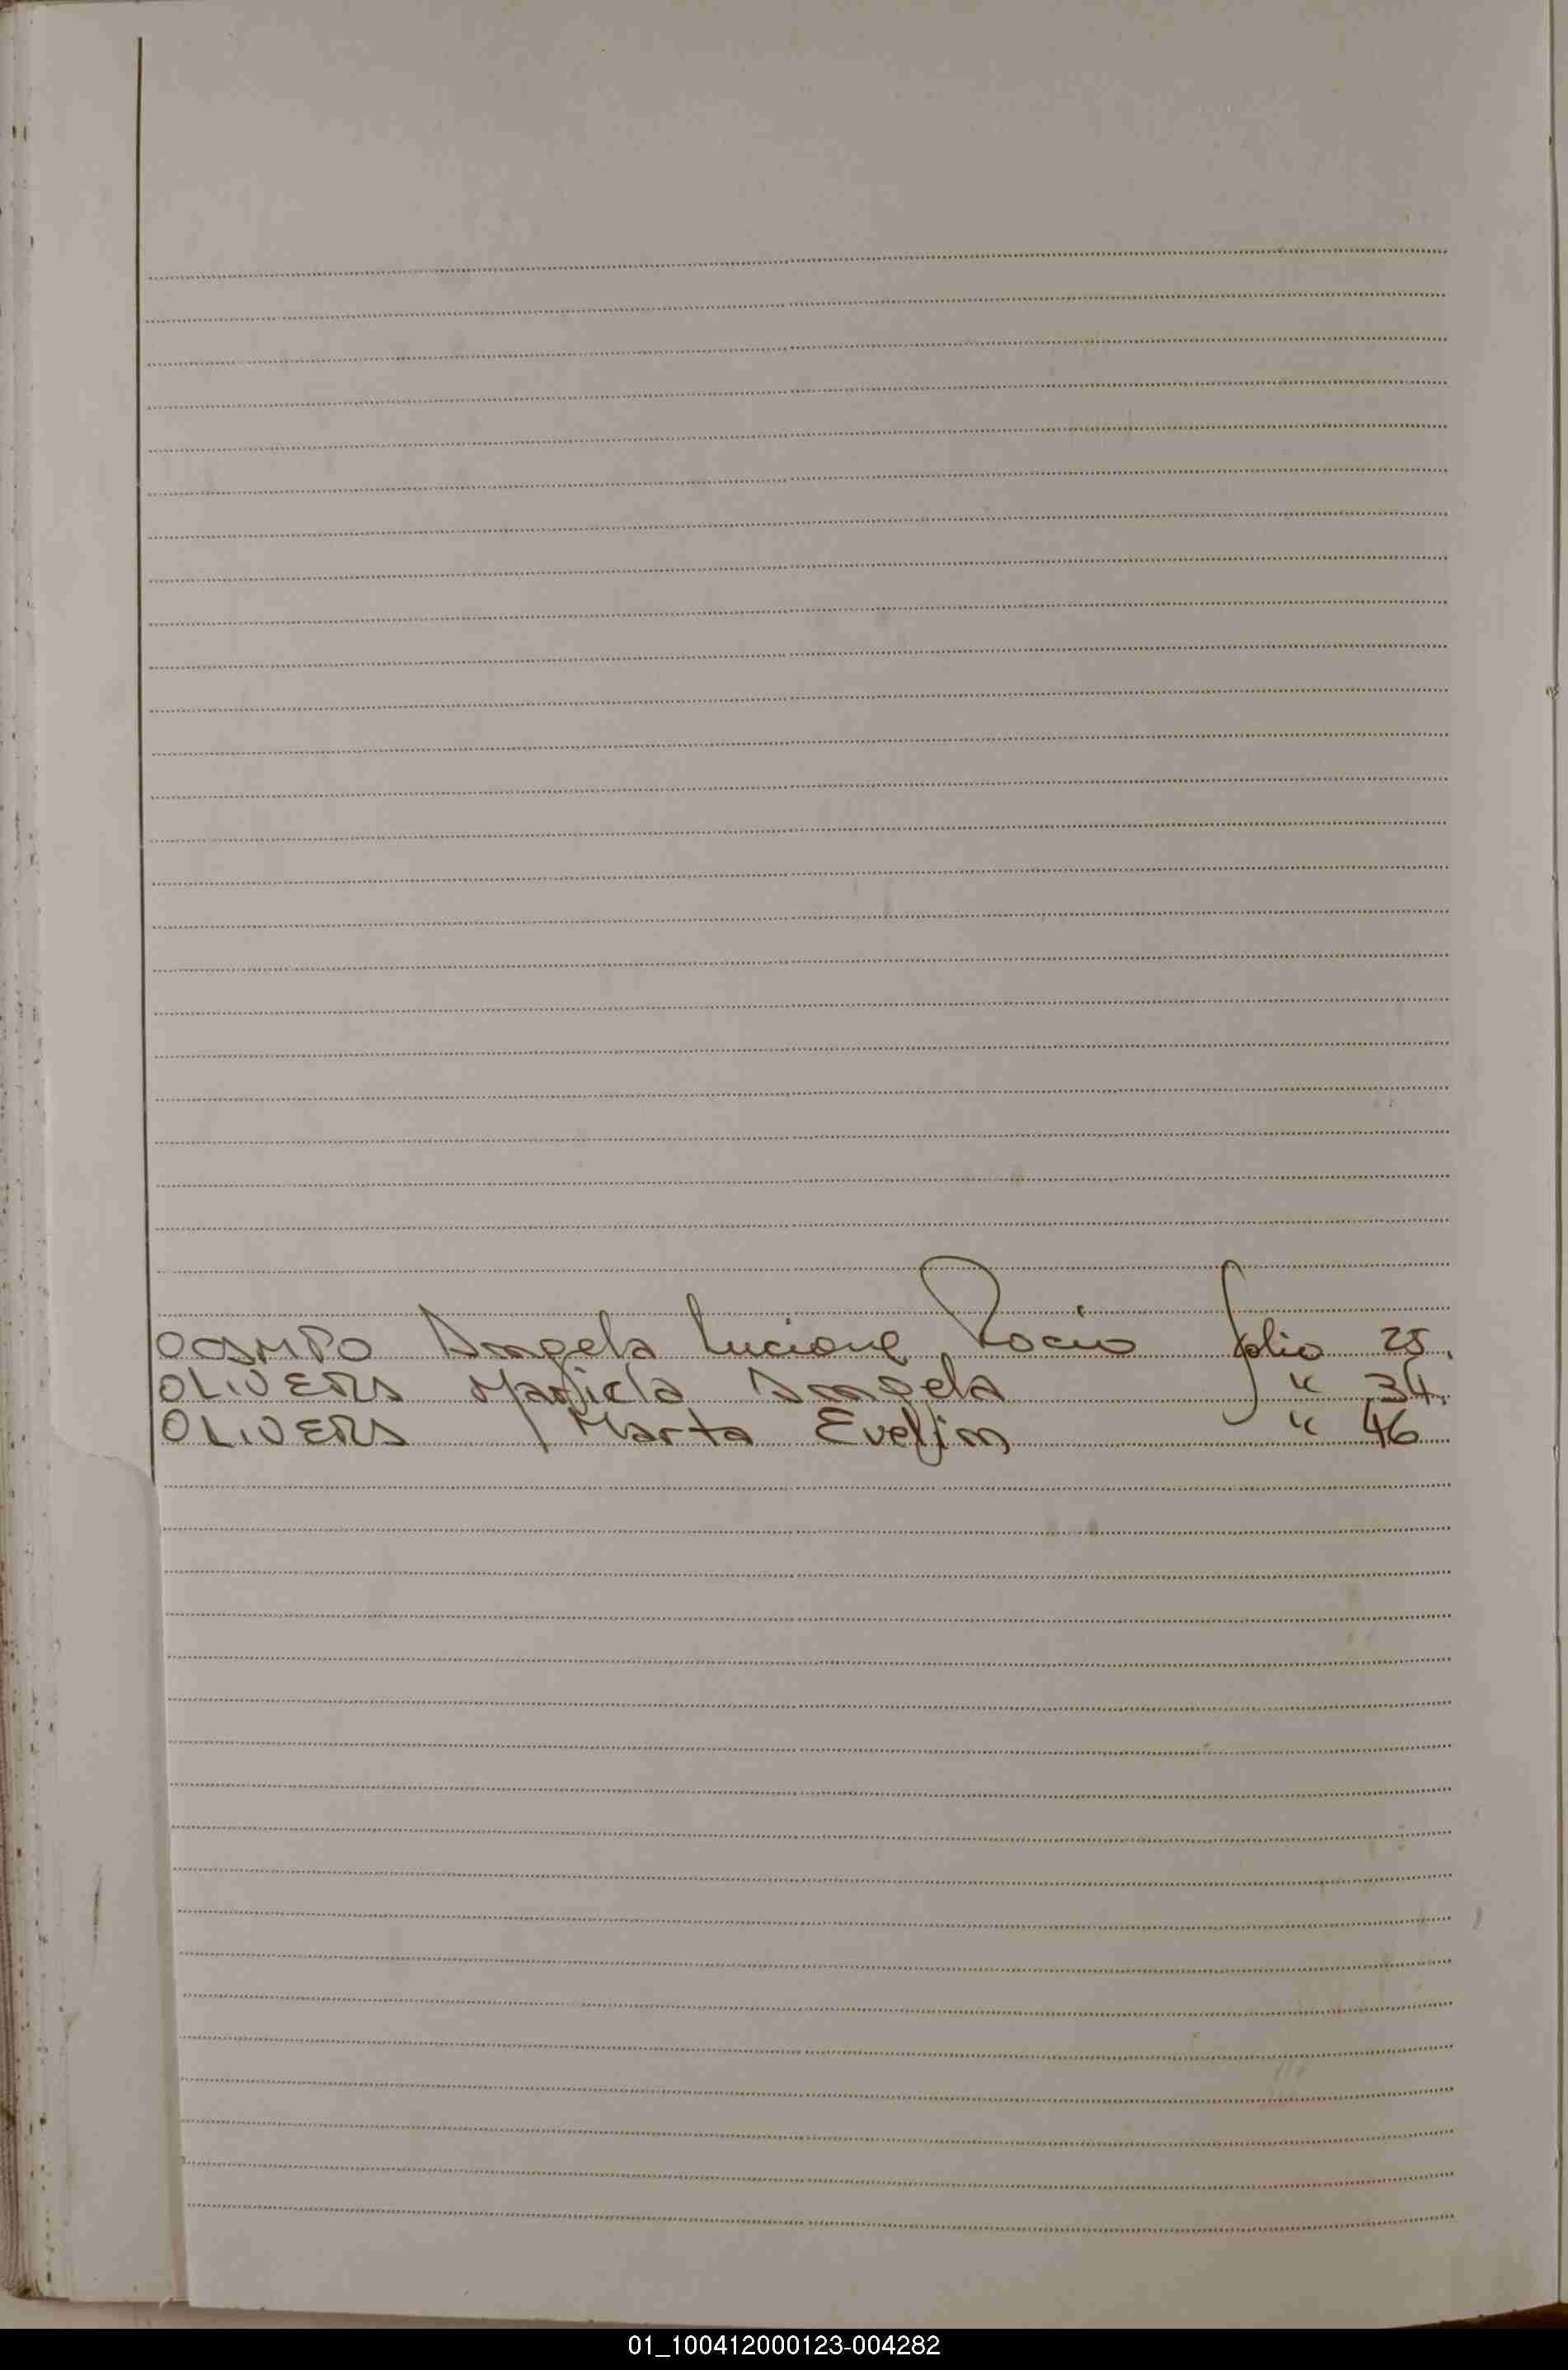 OCAMPO Angela Luciana Rocio folio 25.
OLIVERA Mariela Angela " 34.
OLIVERA Marta Evelin " 46
01_100412000123-004282